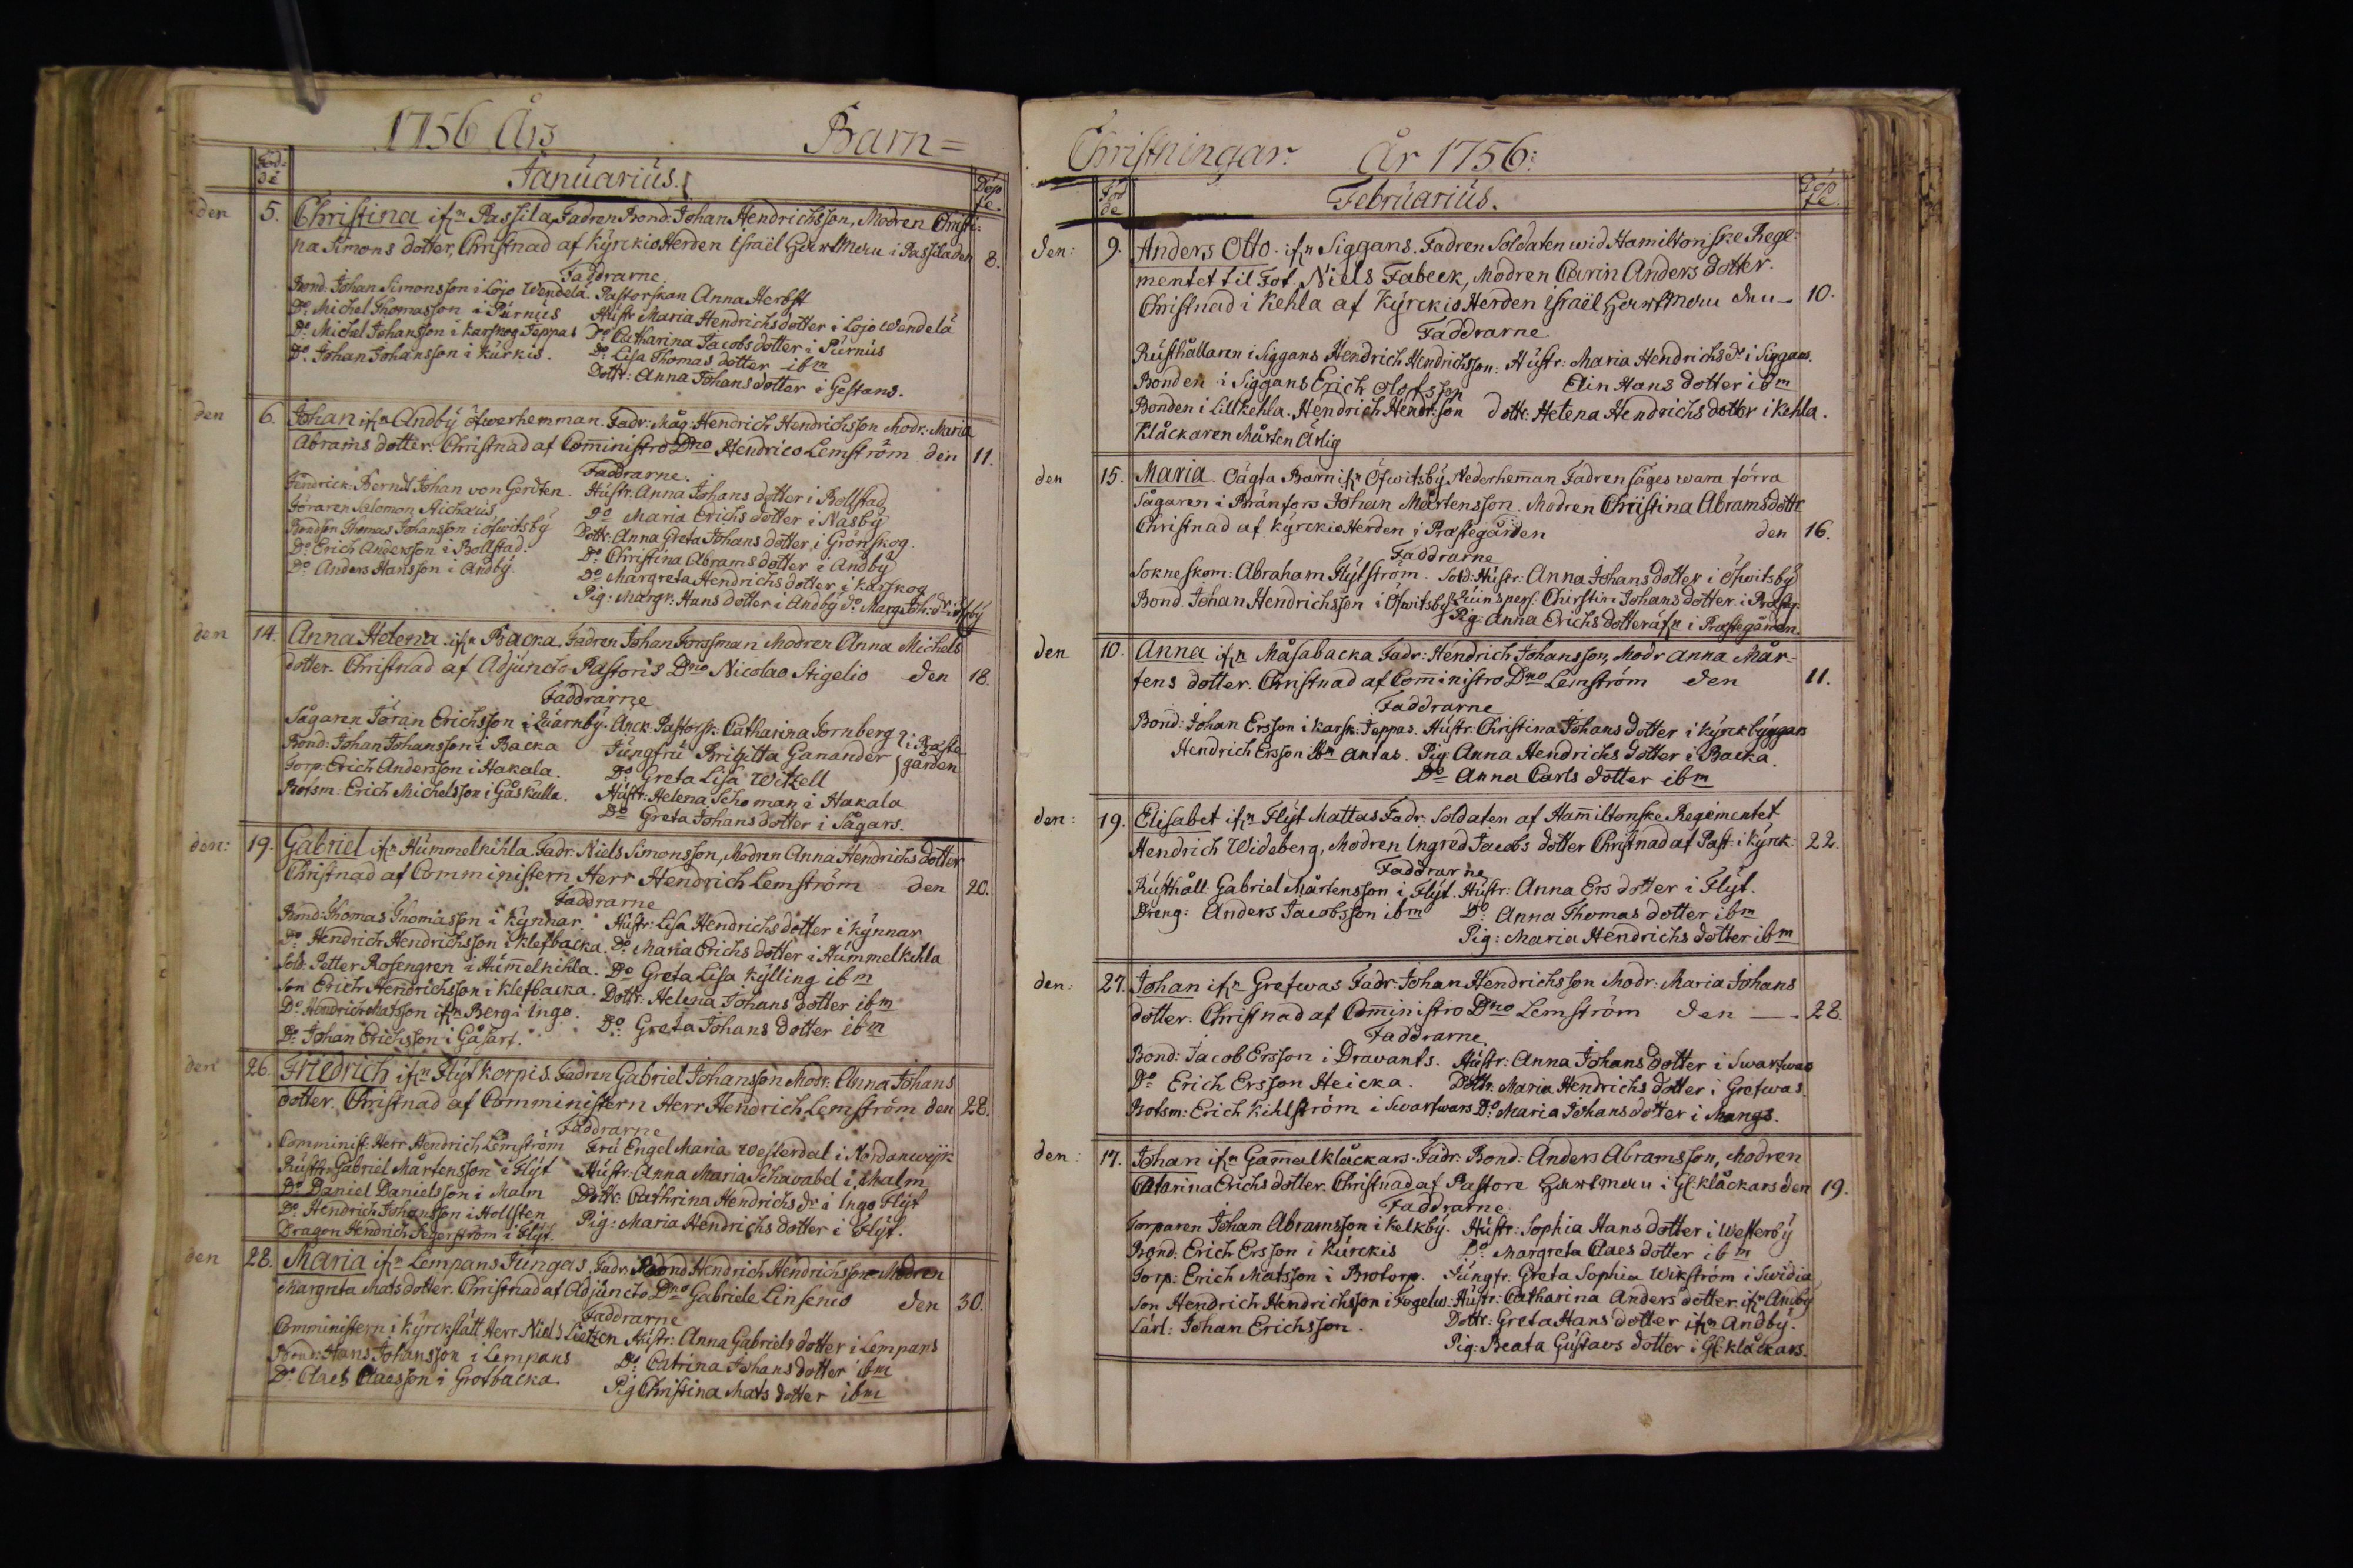 1756 Års Barn=
Föd-
de
Januarius.
Döp
te.
den 5. Christina ifrn Passila, Fadren Bond: Johan Hendrichsson, Modren Christi-
na Simons dotter, Christnad af Kyrckio Herden Israël Hartman i Passila den 8.
Faddrarne
Bond: Johan Simonsson i Lojo Wendelä. Pastorskan Anna Herbst
Do Michel Thomasson i Purnus Hustr Maria Hendrichsdotter i Lojo Wendelä
Do Michel Johansson i Karskog Jeppas Do Catharina Jacobs dotter i Purnus
Do Johan Johansson i Kurkis. Do Lisa Thomas dotter ibm
Dottr: Anna Johans dotter i Gestans.
den 6. Johan ifrn Andby öfwerhemman. Fadr: Måg: Hendrich Hendrichsson Modr: Maria
Abrams dotter. Christnad af Comministro Dno Hendrico Lemström den 11.
Faddrarne.
Fendrick: Berndt Johan von Gerdten. Hustr. Anna Johans dotter i Bollstad
Föraren Salomon Aichæus Do Maria Erichs dotter i Näsby
Bondson Thomas Johansson i öfwitsby Dottr: Anna Greta Johans dotter i Grönskog.
Do Erich Andersson i Bollstad. Do Christina Abrams dotter i Andby
Do Anders Hansson i Andby. Do Margreta Hendrichs dotter i Karskog
Pig: Margr: Hans dotter i Andby Do Marg: Joh: dr
den 14. Anna Helena ifrn Backa Fadren Johan Forssman Modren Anna Michels
dotter. Christnad af Adjuncto Pastoris Dno Nicolao Stigelio den 18.
Faddrarne
Sågaren Jöran Erichsson i Quarnby. Anck. Pastorsk: Catharina Fornberg } i Præste
Bond: Johan Johansson i Backa Jungfru Brigitta Ganander } gården
Torp: Erich Andersson i Hakala. Do Greta Lisa Witzell
Båtsm: Erich Michelsson i Gåskulla. Hustr: Helena Schoman i Hakala
Do Greta Johans dotter i Sågars.
den: 19. Gabriel ifrn Hummelkihla Fadr: Niels Simonsson, Modren Anna Hendrichs dotter
Christnad af Comministern Herr Hendrich Lemström den 20.
Faddrarne
Bond: Thomas Thomasson i Kynnar. Hustr: Lisa Hendrichs dotter i Kynnar
Do Hendrich Hendrichsson i Klefbacka. Do Maria Erichs dotter i Hummelkihla
Sold: Petter Rosengren i Hummelkihla. Do Greta Lisa Kylling ibm
Son Erich Hendrichsson i Klefbacka. Dottr: Helena Johans dotter ibm
Do Hendrich Matsson ifrn Berg i Ingo. Do Greta Johans dotter ibm
Do Johan Erichsson i Gåsarf.
den 26. Friedrich ifrn Flyt Korpis. Fadren Gabriel Johansson Modr: Anna Johans
dotter. Christnad af Comministern Herr Hendrich Lemström den 28.
Faddrarne
Comminist Herr Hendrich Lemström Fru Engel Maria Westerdal i Nordanwijk
Rusthr Gabriel Mårtensson i Flyt Hustr: Anna Maria Schwabel i Malm
Do Daniel Danielsson i Malm Dottr: Cathrina Hendrichs dr i Ingo Flyt
Do Hendrich Johansson i Hollsten Pig: Maria Hendrichs dotter i Flyt.
Dragon Hendrich Segerström i Flyt.
den 28. Maria ifrn Lempans Jungars. Fadr: Bond Hendrich Hendrichsson Modren
Margreta Mats dotter. Christnad af Adjuncto Dno Gabriele Linsenio den 30.
Faddrarne
Comministern i Kyrckslätt Herr Niels Lietzen Hustr: Anna Gabriels dotter i Lempans
Bond: Hans Johansson i Lempans Do Catrina Johans dotter ibm
Do Claes Claesson i Grotbacka. Pig Christina Mats dotter ibm
Christningar. År 1756:
Föd
de
Februarius.
Döp
te
den: 9. Anders Otto. ifrn Siggans. Fadren Soldaten wid Hamiltonske Rege-
mentet til Fot Niels Fabeck, Modren Carin Anders dotter.
Christnad i Kehla af Kyrckio Herden Israël Hartman den 10.
Faddrarne.
Rusthållaren i Siggans Hendrich Hendrichsson. Hustr: Maria Hendrichs dr i Siggans.
Bonden i Siggans Erich Olofsson Elin Hans dotter ibm
Bonden i Lillkehla. Hendrich Hendr:son dottr: Helena Hendrichs dotter i Kehla.
Klåckaren Mårten Ärlig
den 15. Maria. Oägta Barn ifrn Öfwitsby Nederhemman Fadren säges wara förra
Sågaren i Bränfors Johan Mårtensson. Modren Christina Abramsdottr
Christnad af Kyrckio Herden i Præstegården den 16.
Faddrarne
Sokneskom: Abraham Flytström. Sold: Hustr: Anna Johans dotter i Öfwitsby
Bond. Johan Hendrichsson i Öfwitsby Quinspers. Chirstin Johans dotter i Præsteg:
Pig: Anna Erichs dotter äfn i Præstegården.
den 10. Anna ifrn Måsabacka Fadr: Hendrich Johansson, Modr Anna Mår-
tens dotter. Christnad af Comministro Dno Lemström den 11.
Faddrarne
Bond: Johan Ersson i Karsk: Jeppas. Hustr: Christina Johans dotter i Kyrckbyggars
Hendrich Ersson ibm Antas. Pig: Anna Hendrichs dotter i Backa.
Do Anna Carls dotter ibm
den: 19. Elisabet ifrn Flyt Mattas Fadr: Soldaten af Hamiltonske Regementet
Hendrich Wideberg, Modren Ingred Jacobs dotter Christnad af Past: i Kyrck: 22.
Faddrarne
Rusthåll: Gabriel Mårtensson i Flyt. Hustr: Anna Ers dotter i Flyt.
Dreng: Anders Jacobsson ibm Do Anna Thomas dotter ibm
Pig: Maria Hendrichs dotter ibm
den: 27. Johan ifrn Grefwas Fadr: Johan Hendrichsson Modr: Maria Johans
dotter. Christnad af Comministro Dno Lemström den 28.
Faddrarne
Bond: Jacob Ersson i Drawants. Hustr: Anna Johans dotter i Swartwars
Do Erich Ersson Heicka. Dottr: Maria Hendrichs dotter i Grefwas.
Botsm: Erich Kihlström i Swartwars Do Maria Johans dotter i Mangs.
den 17. Johan ifrn Gammelklåckars. Fadr: Bond: Anders Abramsson, Modren
Catarina Erichs dotter. Christnad af Pastore Hartman i Gl: klåckars den 19.
Faddrarne.
Torparen Johan Abramsson i Kelkby. Hustr: Sophia Hans dotter i Westerby
Bond: Erich Ersson i Kurckis Do Margreta Claes dotter ibm
Torp: Erich Matsson i Brotorp. Jungfr. Greta Sophia Wikström i Swidia
Son Hendrich Hendrichsson i Fogelw: Hustr: Catharina Anders dotter ifrn Andby
Lärl: Johan Erichsson. Dottr: Greta Hans dotter ifrn Andby.
Pig: Beata Gustavs dotter i Gl: klåckars.